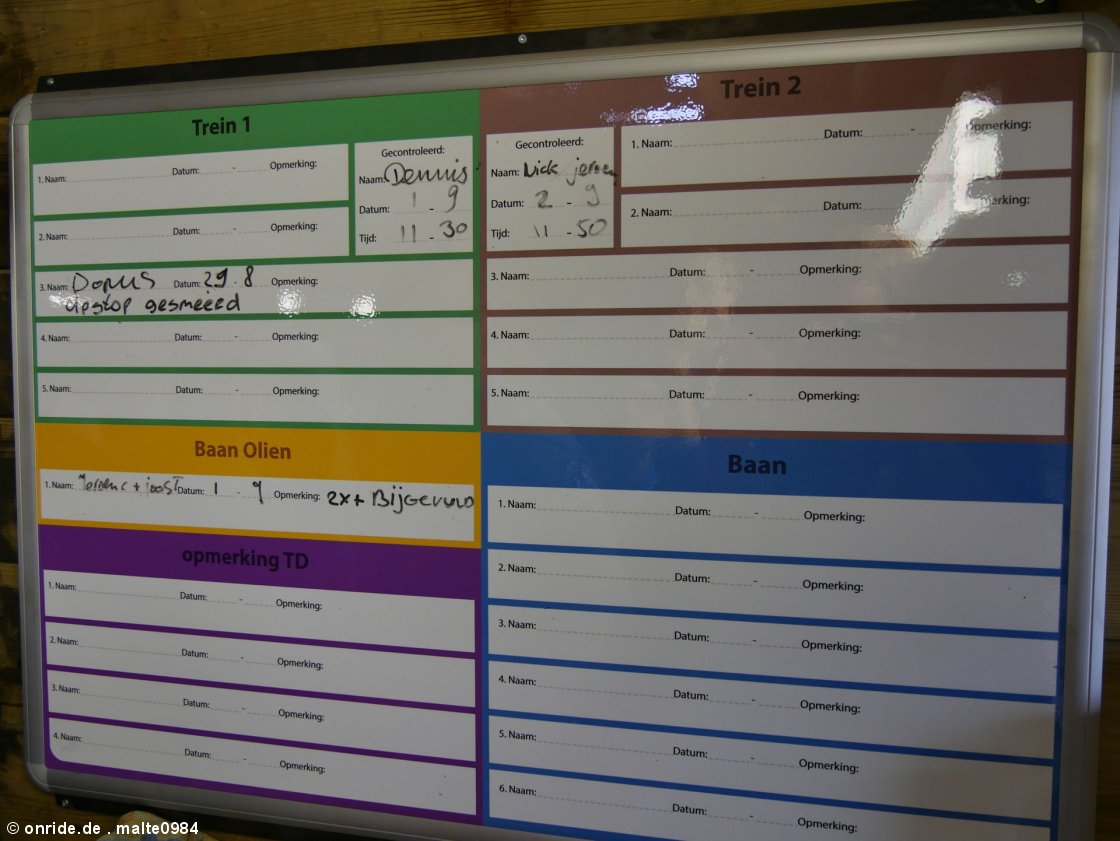 Trein 1
1. Naam: Datum: - Opmerking:
2. Naam: Datum: - Opmerking:
Gecontroleerd:
Naam: Dennis
Datum: 1 - 9
Tijd: 11 - 30
3. Naam: Datum: 29 - 8 Opmerking:
gesmeerd
4. Naam: Datum: - Opmerking:
5. Naam: Datum: - Opmerking:
Trein 2
Gecontroleerd:
Naam: Nick jeroen
Datum: 2 - 9
Tijd: 11 - 50
1. Naam: Datum: - Opmerking:
2. Naam: Datum: - Opmerking:
3. Naam: Datum: - Opmerking:
4. Naam: Datum: - Opmerking:
5. Naam: Datum: - Opmerking:
Baan Olien
1. Naam: + joost Datum: 1 - 9 Opmerking: 2x + Bijgevuld
opmerking TD
1. Naam: Datum: - Opmerking:
2. Naam: Datum: - Opmerking:
3. Naam: Datum: - Opmerking:
4. Naam: Datum: - Opmerking:
Baan
1. Naam: Datum: - Opmerking:
2. Naam: Datum: - Opmerking:
3. Naam: Datum: - Opmerking:
4. Naam: Datum: - Opmerking:
5. Naam: Datum: - Opmerking:
6. Naam: Datum: - Opmerking:
© onride.de . malte0984